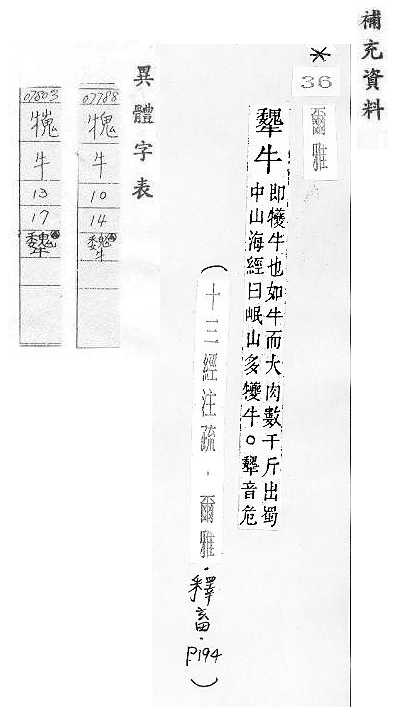 補充資料
*
36
爾雅
犩牛
即犪牛也如牛而大肉數千斤出蜀
中山海經曰岷山多犪牛○犩音危
(十三經注疏．爾雅．釋畜．P194)
異體字表
07788
牛
10
14
07803
牛
13
17
犩